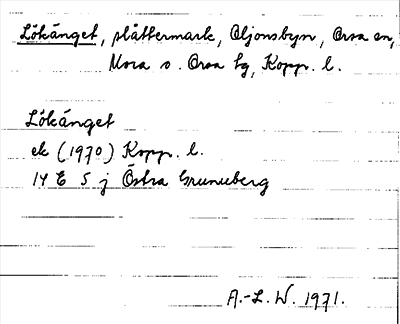 Lökänget, slåttermark, Oljonsbyn, Orsa sn,
Mora o. Orsa tg, Kopp. l.
Lökänget
ek (1970) Kopp. l.
14 E 5 j Östra Grunuberg
A.-L. W. 1971.